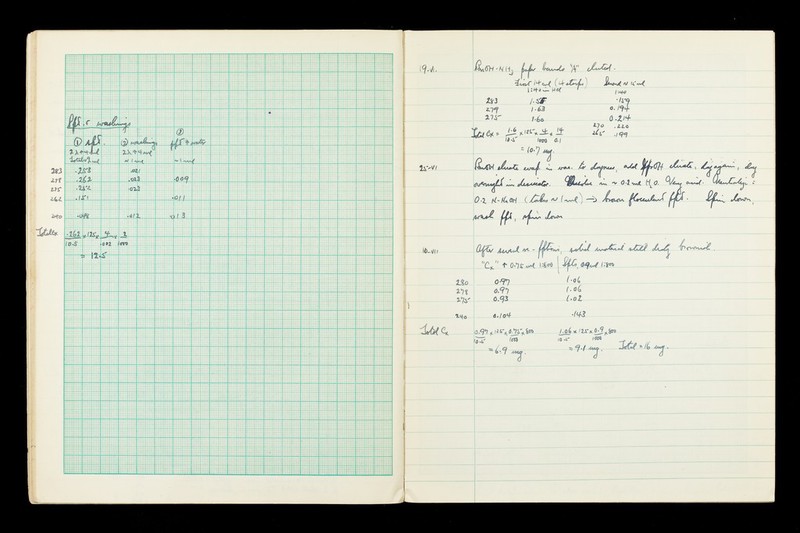 ppt. & washings
① spt. ② washings ③ ppt + water
2λ + 4 ml 2λ + 4 ml
Total 3 ml ~ 1 ml ~ 1 ml
283 .253 .021
278 .262 .023 .009
275 .256 .023
262 .151 .011
290 .012 .013
.262 × 125 × 4 × 3
10.5 .002 1000
= 12.5
19.VI. BuOH-NH3 paper bands "A" eluted.
First 14 ml (14 strips) Second
283 1.58 .159
279 1.63 0.194
275 1.60 0.214
270 .220
265 .199
Total Cx = 1.6 × 125 × 4 × 14
10.5 1000 0.1
= 10.7 mg
25-VI BuOH eluate evap. in vac. to dryness, add BuOH eluate, dry again, dry
overnight in desiccator. Dissolve in ~ 0.3 ml H2O. Very acid. Neutralize :
0.2 N-NaOH (takes ~ 1 ml) → brown flocculent ppt. Spin down,
wash ppt, spin down
10.VII After several re-pptions, solid material still being removed.
"Cx" + 0.75 ml 1:800 Spts, 0.9 ml 1:800
280 0.97 1.06
278 0.97 1.06
275 0.93 1.02
290 0.104 .143
Total Cx 0.97 × 125 × 0.75 × 800 1.06 × 125 × 0.9 × 800
10.5 1000 10.5 1000
= 6.9 mg. = 9.1 mg. Total = 16 mg.